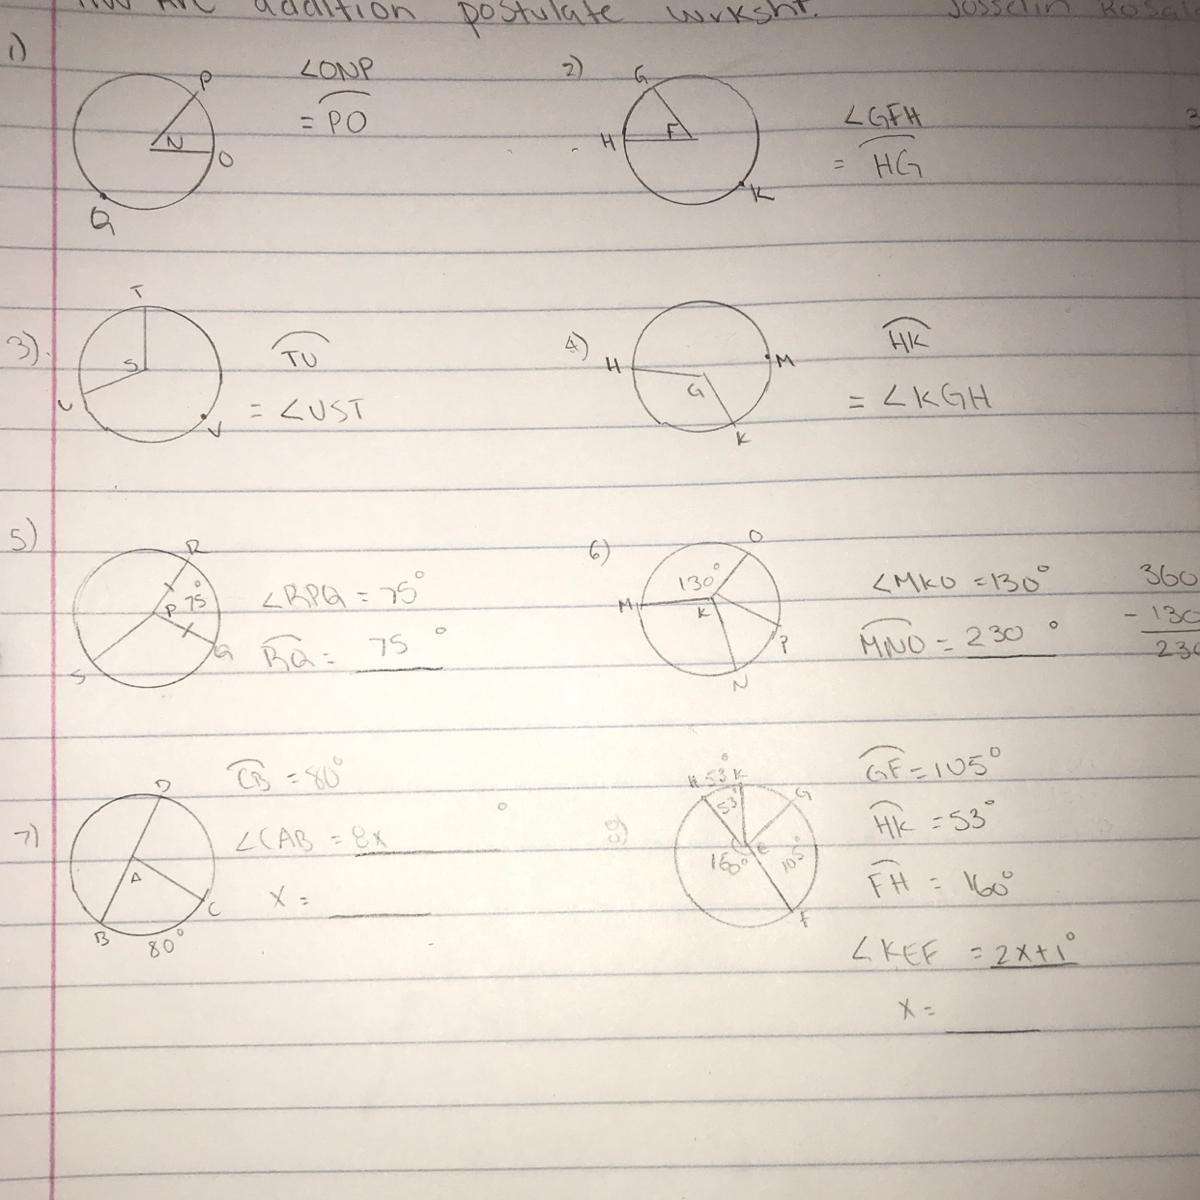 addition postulate wrksht. Josselin
1)
P
N
O
Q
∠ONP
= PO
2)
G
H
F
K
∠GFH
= HG
3)
T
S
U
V
TU
= ∠UST
4)
H
M
G
K
HK
= ∠KGH
5)
R
P 75°
Q
S
∠RPQ = 75°
RQ = 75°
6)
O
130°
M
K
P
N
∠MKO = 130°
MNO = 230°
360
- 130
230
7)
D
A
B
C
80°
CB = 80°
∠CAB = 8x °
x =
8)
H 53° K
G
53°
E
160°
105°
F
GF = 105°
HK = 53°
FH = 160°
∠KEF = 2x+1°
x =